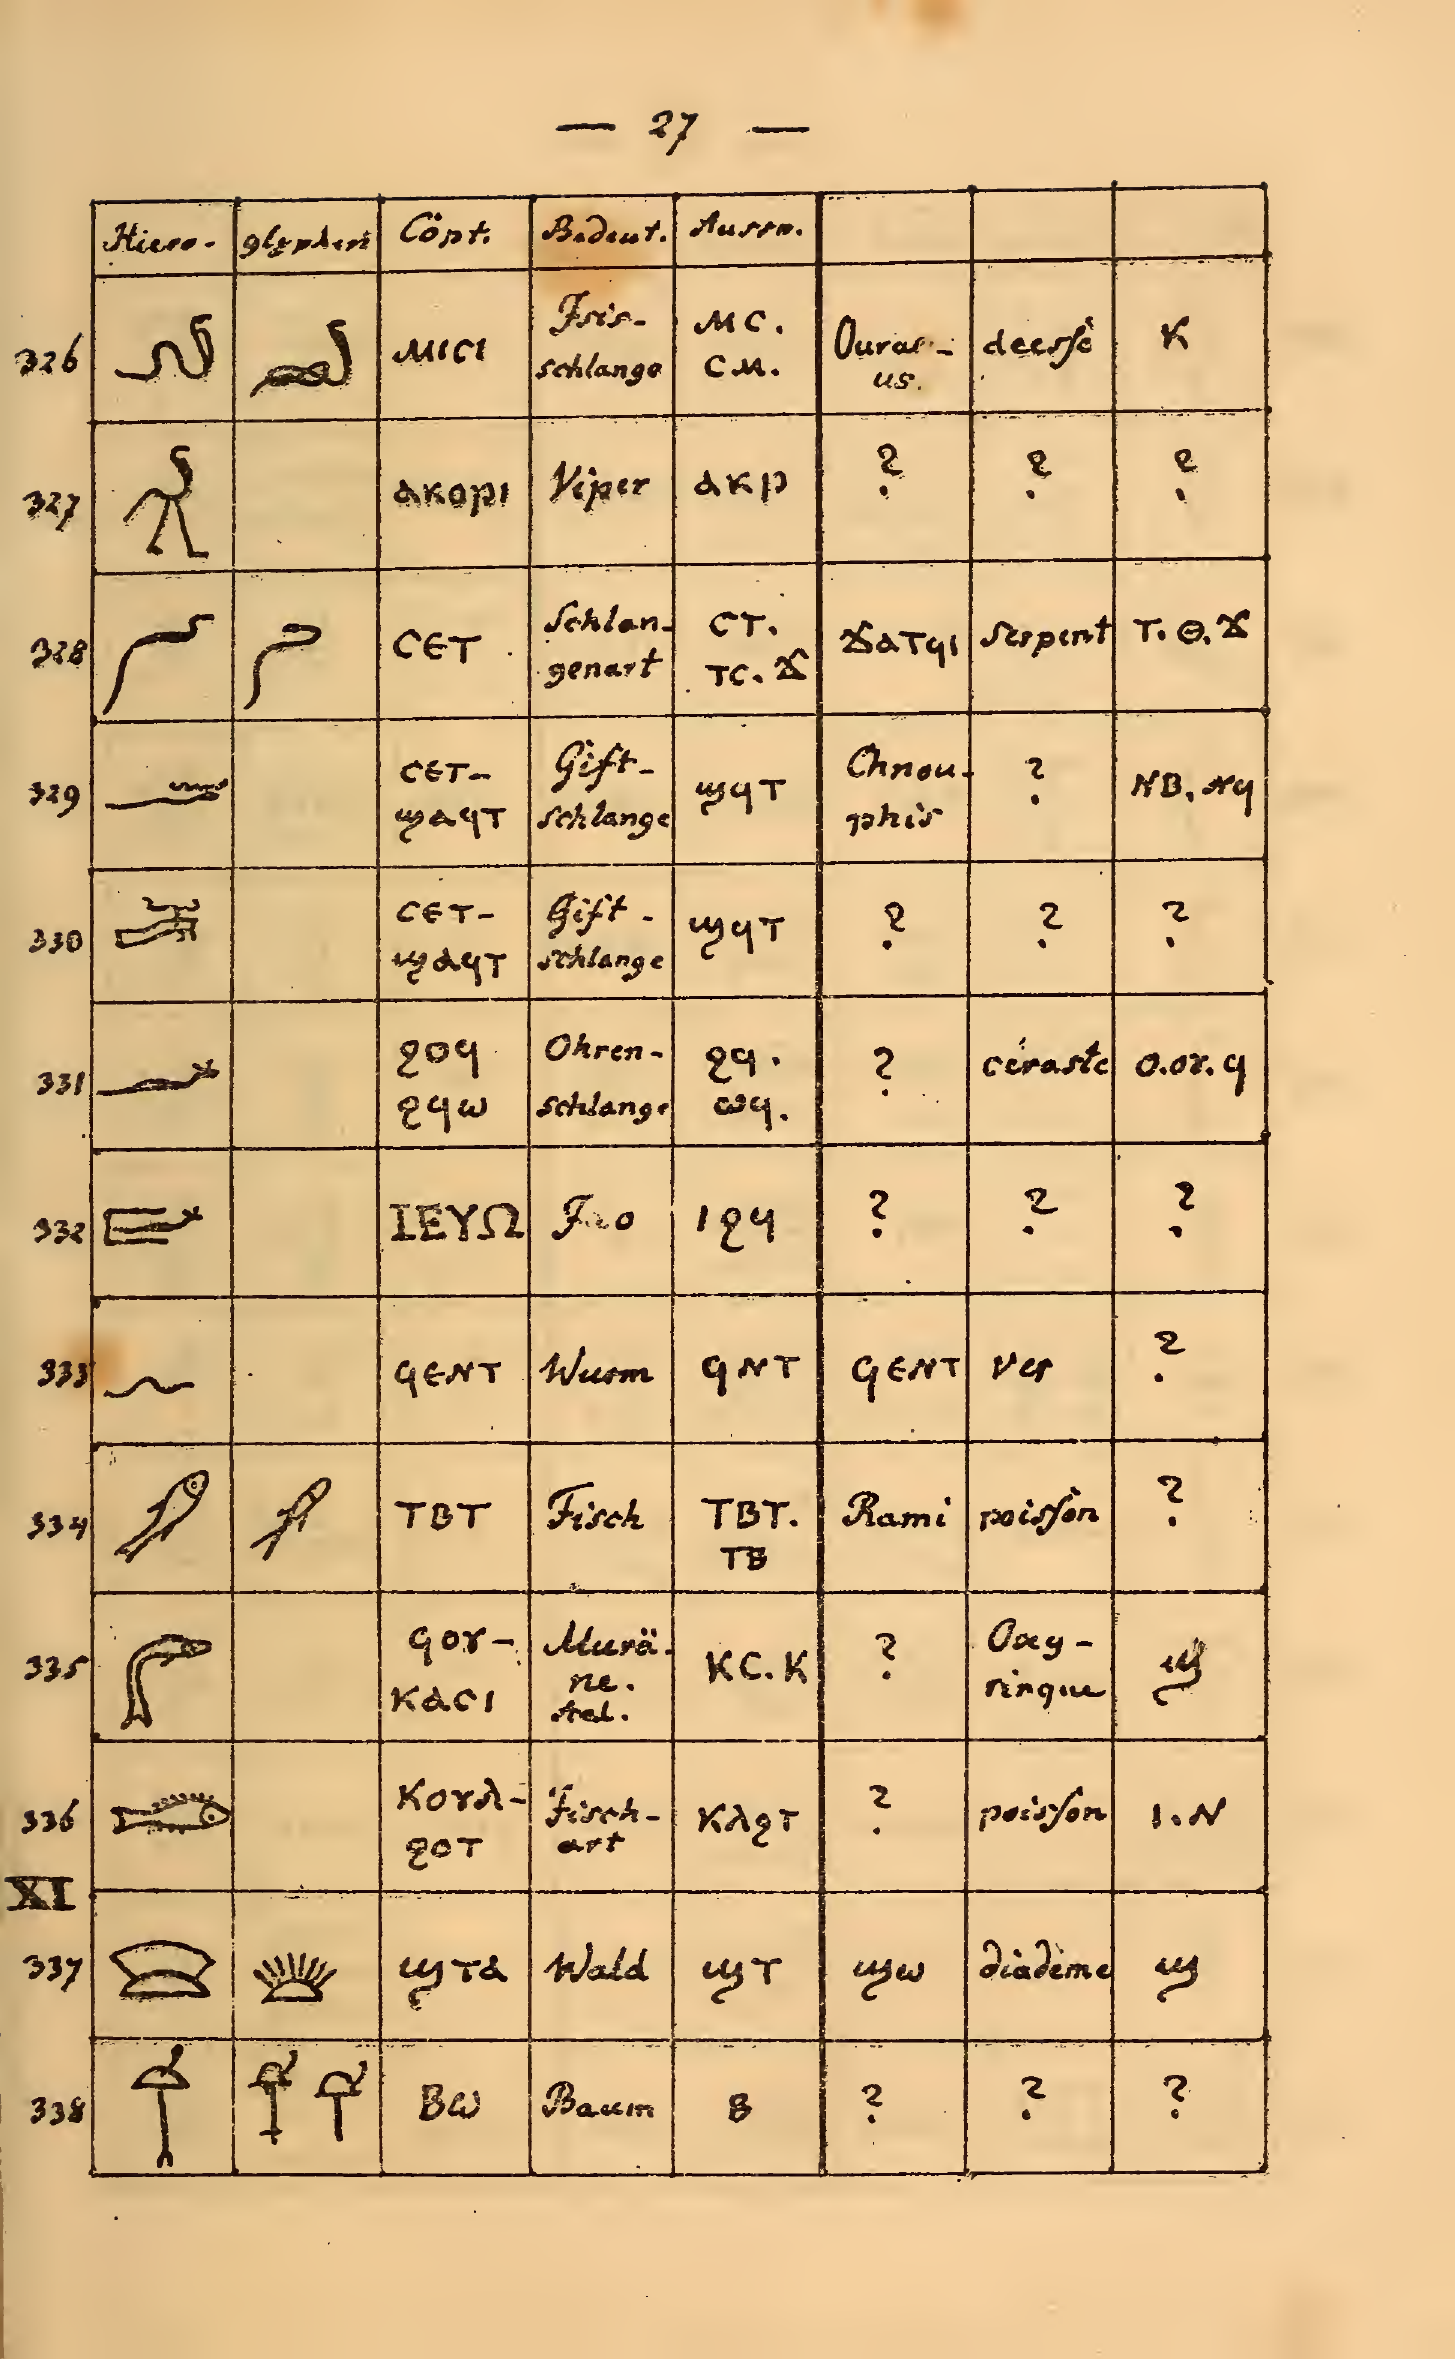 — 27 —
Hiero- glyphen Copt. Bedeut. Ausspr.
326 ⲙⲓⲥⲓ Isis-schlange ⲙⲥ. ⲥⲙ. Ourae-us. deesse K
327 ⲁⲕⲟⲣⲓ Viper ⲁⲕⲣ ? ? ?
328 ⲥⲉⲧ Schlan-genart ⲥⲧ. ⲧⲥ. ϫ ϫⲁⲧϥⲓ serpent ⲧ. ⲑ. ϫ
329 ⲥⲉⲧ-ϣⲁϥⲧ Gift-schlange ϣϥⲧ Chnou-phis ? ⲛⲃ, ⲛϥ
330 ⲥⲉⲧ-ϣⲁϥⲧ Gift-schlange ϣϥⲧ ? ? ?
331 ϩⲟϥ ϩϥⲱ Ohren-schlange ϩϥ. ⲱϥ. ? céraste ⲟ.ⲟⲩ. ϥ
332 ΙΕΥΩ Jao ⲓϩϥ ? ? ?
333 ϥⲉⲛⲧ Wurm ϥⲛⲧ ϥⲉⲛⲧ Ver ?
334 ⲧⲃⲧ Fisch ⲧⲃⲧ. ⲧⲃ Rami poisson ?
335 ϥⲟⲩ-ⲕⲁⲥⲓ Murä-ne. ⲕⲥ. ⲕ ? Oxy-rinque ϣ
336 ⲕⲟⲩⲗ-ϩⲟⲧ Fisch-art ⲕⲗϩⲧ ? poisson ⲓ. ⲛ
XI
337 ϣⲧⲁ Wald ϣⲧ ϣⲱ diadème ϣ
338 ⲃⲱ Baum ⲃ ? ? ?